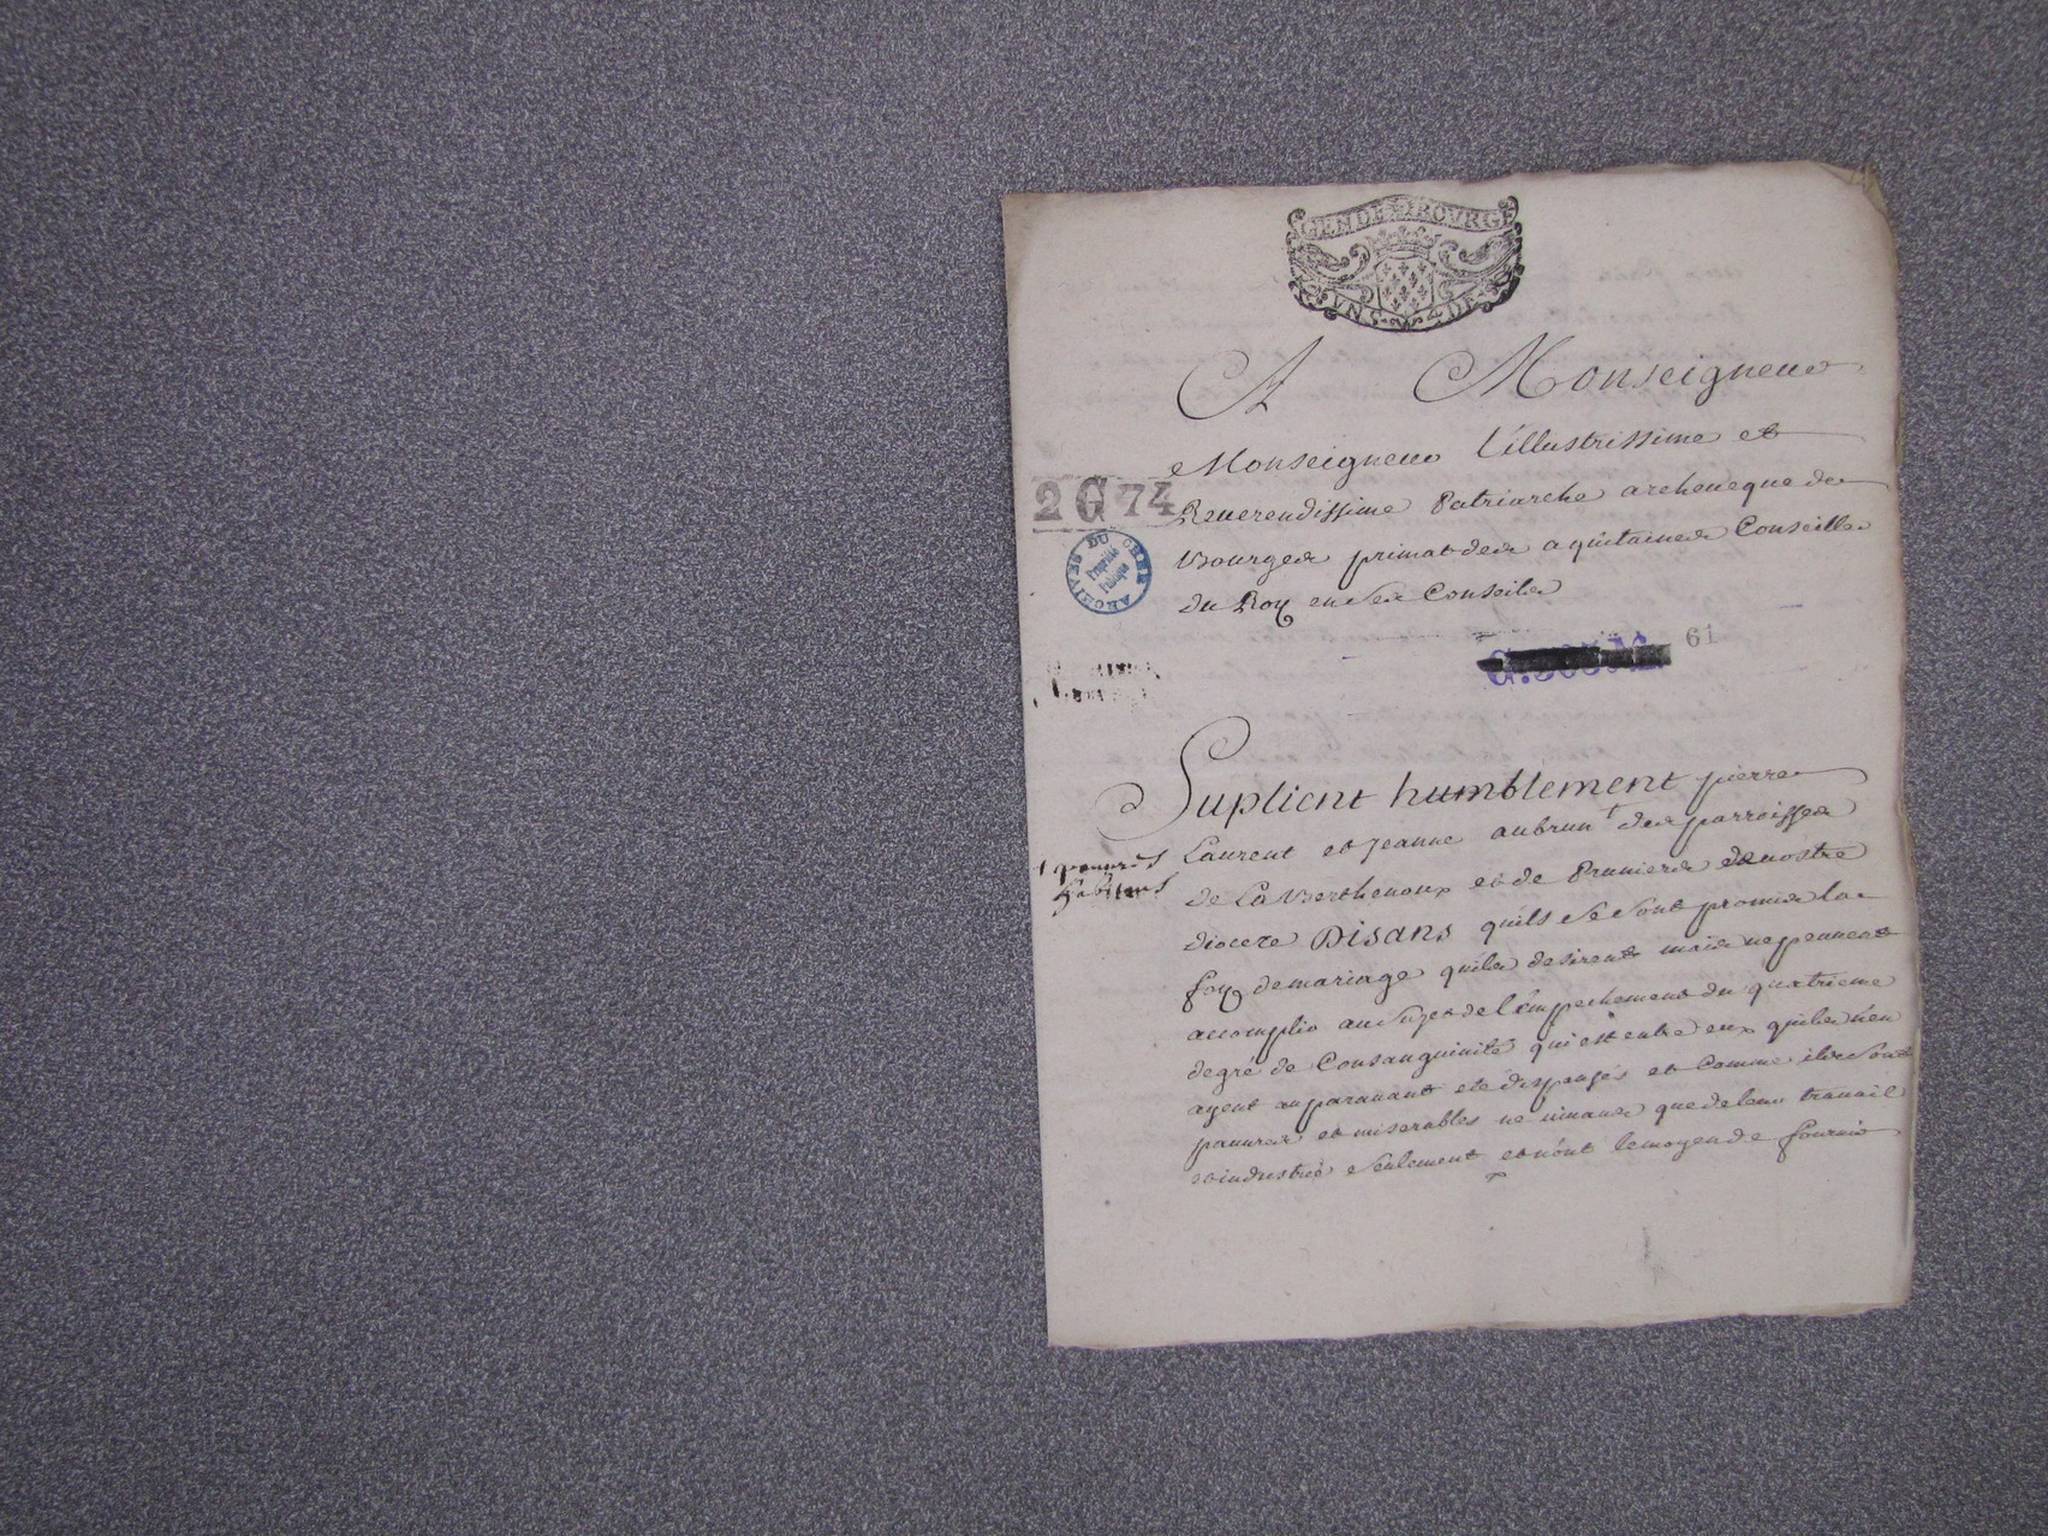 GEN DE BOVRGE
VNS DE
A Monseigneur
Monseigneur L'illustrissime et
Reuerendissime Patriarche archeueque de
Bourges primat des aquitaines Conseiller
du Roy en ses Conseils
2 G 74
ARCHIVES DU CHER
Propriété
Publique
61
Suplient humblement pierre
Laurent et Jeanne aubrun † des parroisses
† pauures
habitans
de La Berthenoux et de Pruniers de nostre
diocese Disans quils se sont promis la
foy de mariage quils desirent mais ne peuuent
accomplir au sujet de l'empechement du quatrieme
degré de Consanguinité qui est entre eux quils n'en
ayent auparauant eté dispansés et Comme ils sont
pauures et miserables ne uiuans que de leur trauail
et industrie seulement et n'ont le moyen de fournir